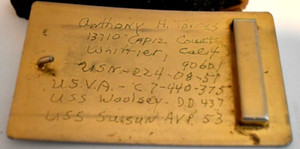 Anthony H.
13710 Capiz Court
Whittier, Calif
90601
U.S.N.-224-08-59
U.S.V.A.-C-7-440-375
USS Woolsey-D.D. 437
USS Suisun AVP. 53